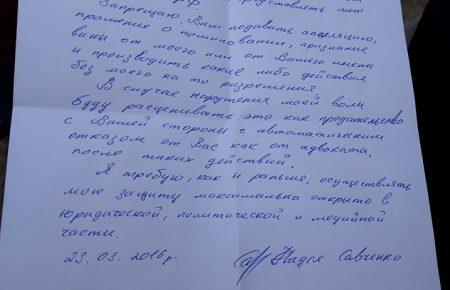 РФ. представлять мою
Запрещаю Вам подавать апелляцию,
прошение о помиловании, признание
вины от моего или от Вашего имени
и производить какие либо действия
без моего на то разрешения.
В случае нарушения моей воли
буду расценивать это как предательство
с Вашей стороны с автоматическим
отказом от Вас как от адвоката,
после таких действий.
Я требую, как и раньше, осуществлять
мою защиту максимально открыто в
юридической, политической и медийной
части.
23. 03. 2016 г. Надія Савченко